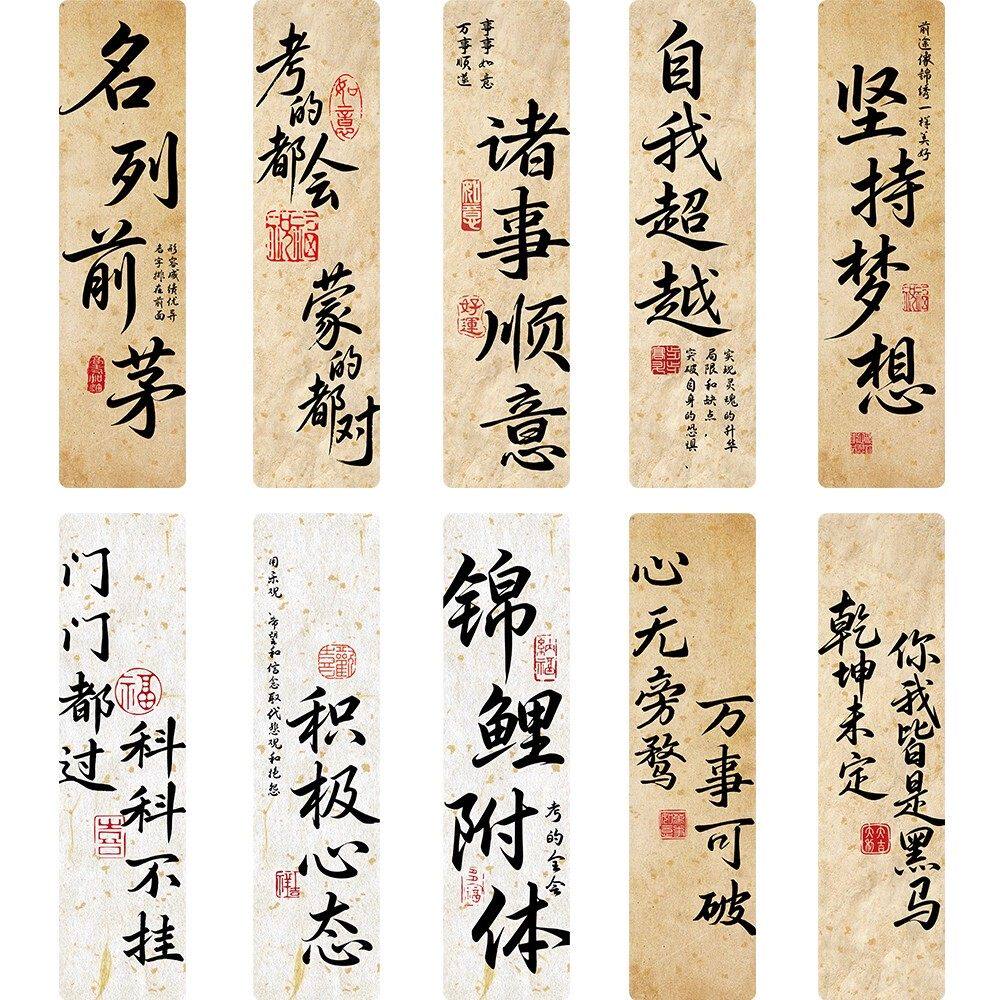 名列前茅
形容成绩优异
名字排在前面
考的都会
如意
蒙的都对
事事如意
万事顺遂
诸事顺意
如意
好運
自我超越
突破自身的恐惧、
局限和缺点，
实现灵魂的升华
前途像锦绣一样美好
坚持梦想
门门都过
福
科科不挂
喜
用乐观、希望和信念取代悲观和抱怨
积极心态
锦鲤附体
納福
考的全会
心无旁骛
万事可破
乾坤未定
你我皆是黑马